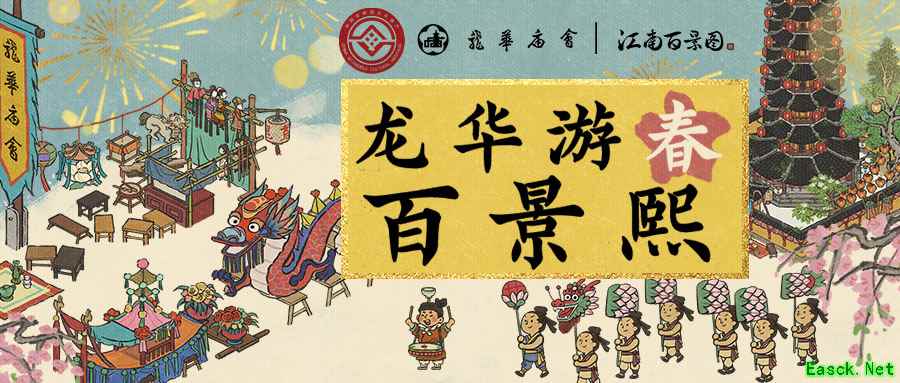 龍華庙會 江南百景图
龍華庙會
龙华游春
百景熙
Easck.Net